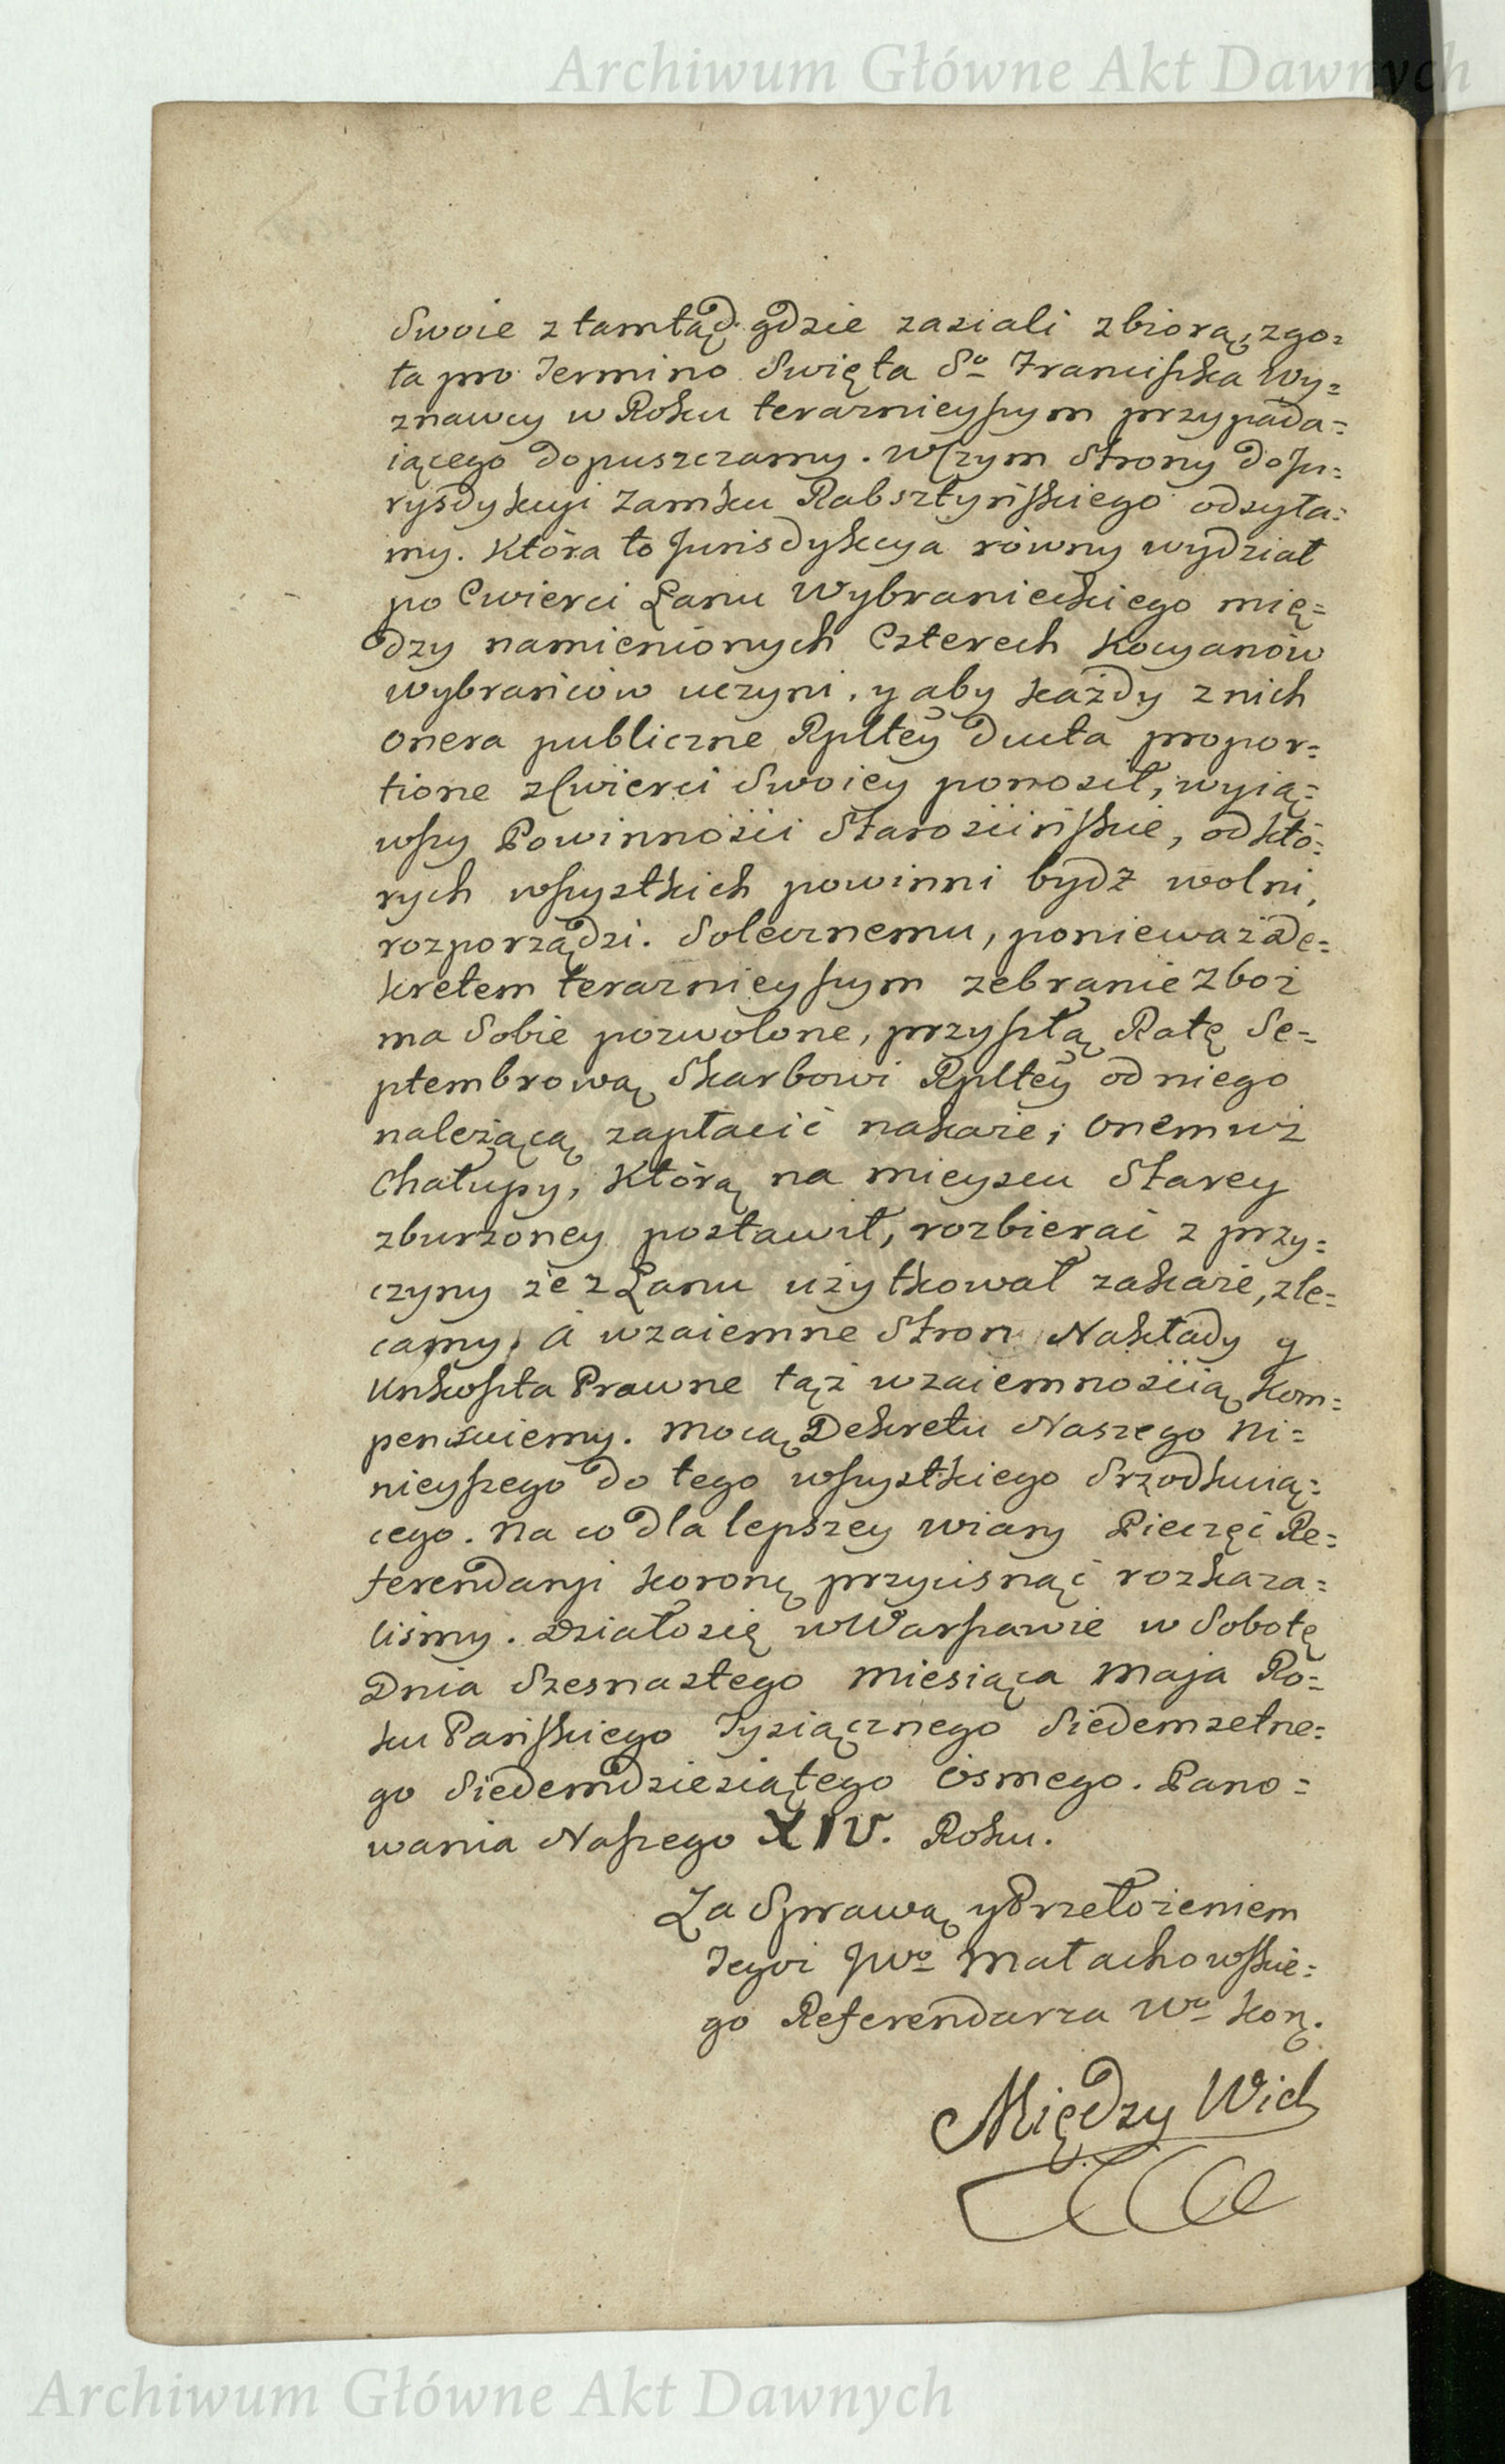 Archiwum Główne Akt Dawnych
Swoie ztamtąd gdzie zasiali zbiorą, zgo=
ła pro Termino Swięta So Franciszka Wy=
znawcy w Roku terazniejszym przypada=
iącego dopuszczamy. Wczym Strony do Ju=
rysdykcyi Zamku Rabsztyńskiego odsyła=
my. Która to Jurisdykcya równy wydział
po Cwierci Łanu Wybranieckiego mię=
dzy namienionych Czterech Kocyanów
wybrańców uczyni, y aby każdy z nich
onera publiczne Rpltey ducta propor=
tione zCwierci Swoiey ponosił, wyią=
wszy Powinności Starościńskie, od któ=
rych wszystkich powinni bydź wolni,
rozporządzi. Solecznemu, ponieważ De=
kretem terazniejszym zebranie zboż
ma Sobie pozwolone, przyszłą Ratę Se=
ptembrową Skarbowi Rpltey od niego
należącą zapłacić nakaże; onemuż
Chałupy, Którą na mieyscu Starey
zburzoney postawił, rozbierać z przy=
czyny że z Łanu użytkował zakaże, zle=
camy. A wzaiemne Stron Nakłady y
Unkoszta Prawne tąż wzaiemnością kom=
pensuiemy. Mocą Dekretu Naszego Ni=
nieyszego do tego wszystkiego Srzodkuią=
cego. Na co dla lepszey wiary Pieczęć Re=
ferendaryi koronę przycisnąć rozkaza=
liśmy. Działo się w Warszawie w Sobotę
Dnia Szesnastego Miesiąca Maja Ro=
ku Pańskiego Tysiącznego Siedemsetne=
go Siedemdziesiątego ósmego. Pano=
wania Naszego XIV. Roku.
Za Sprawą y Przełożeniem
Tegoi JWo Małachowskie=
go Referendarza Wo kor.
Między Wid
Archiwum Główne Akt Dawnych